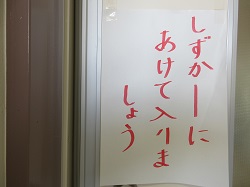 しずかーに
あけて入りま
しょう